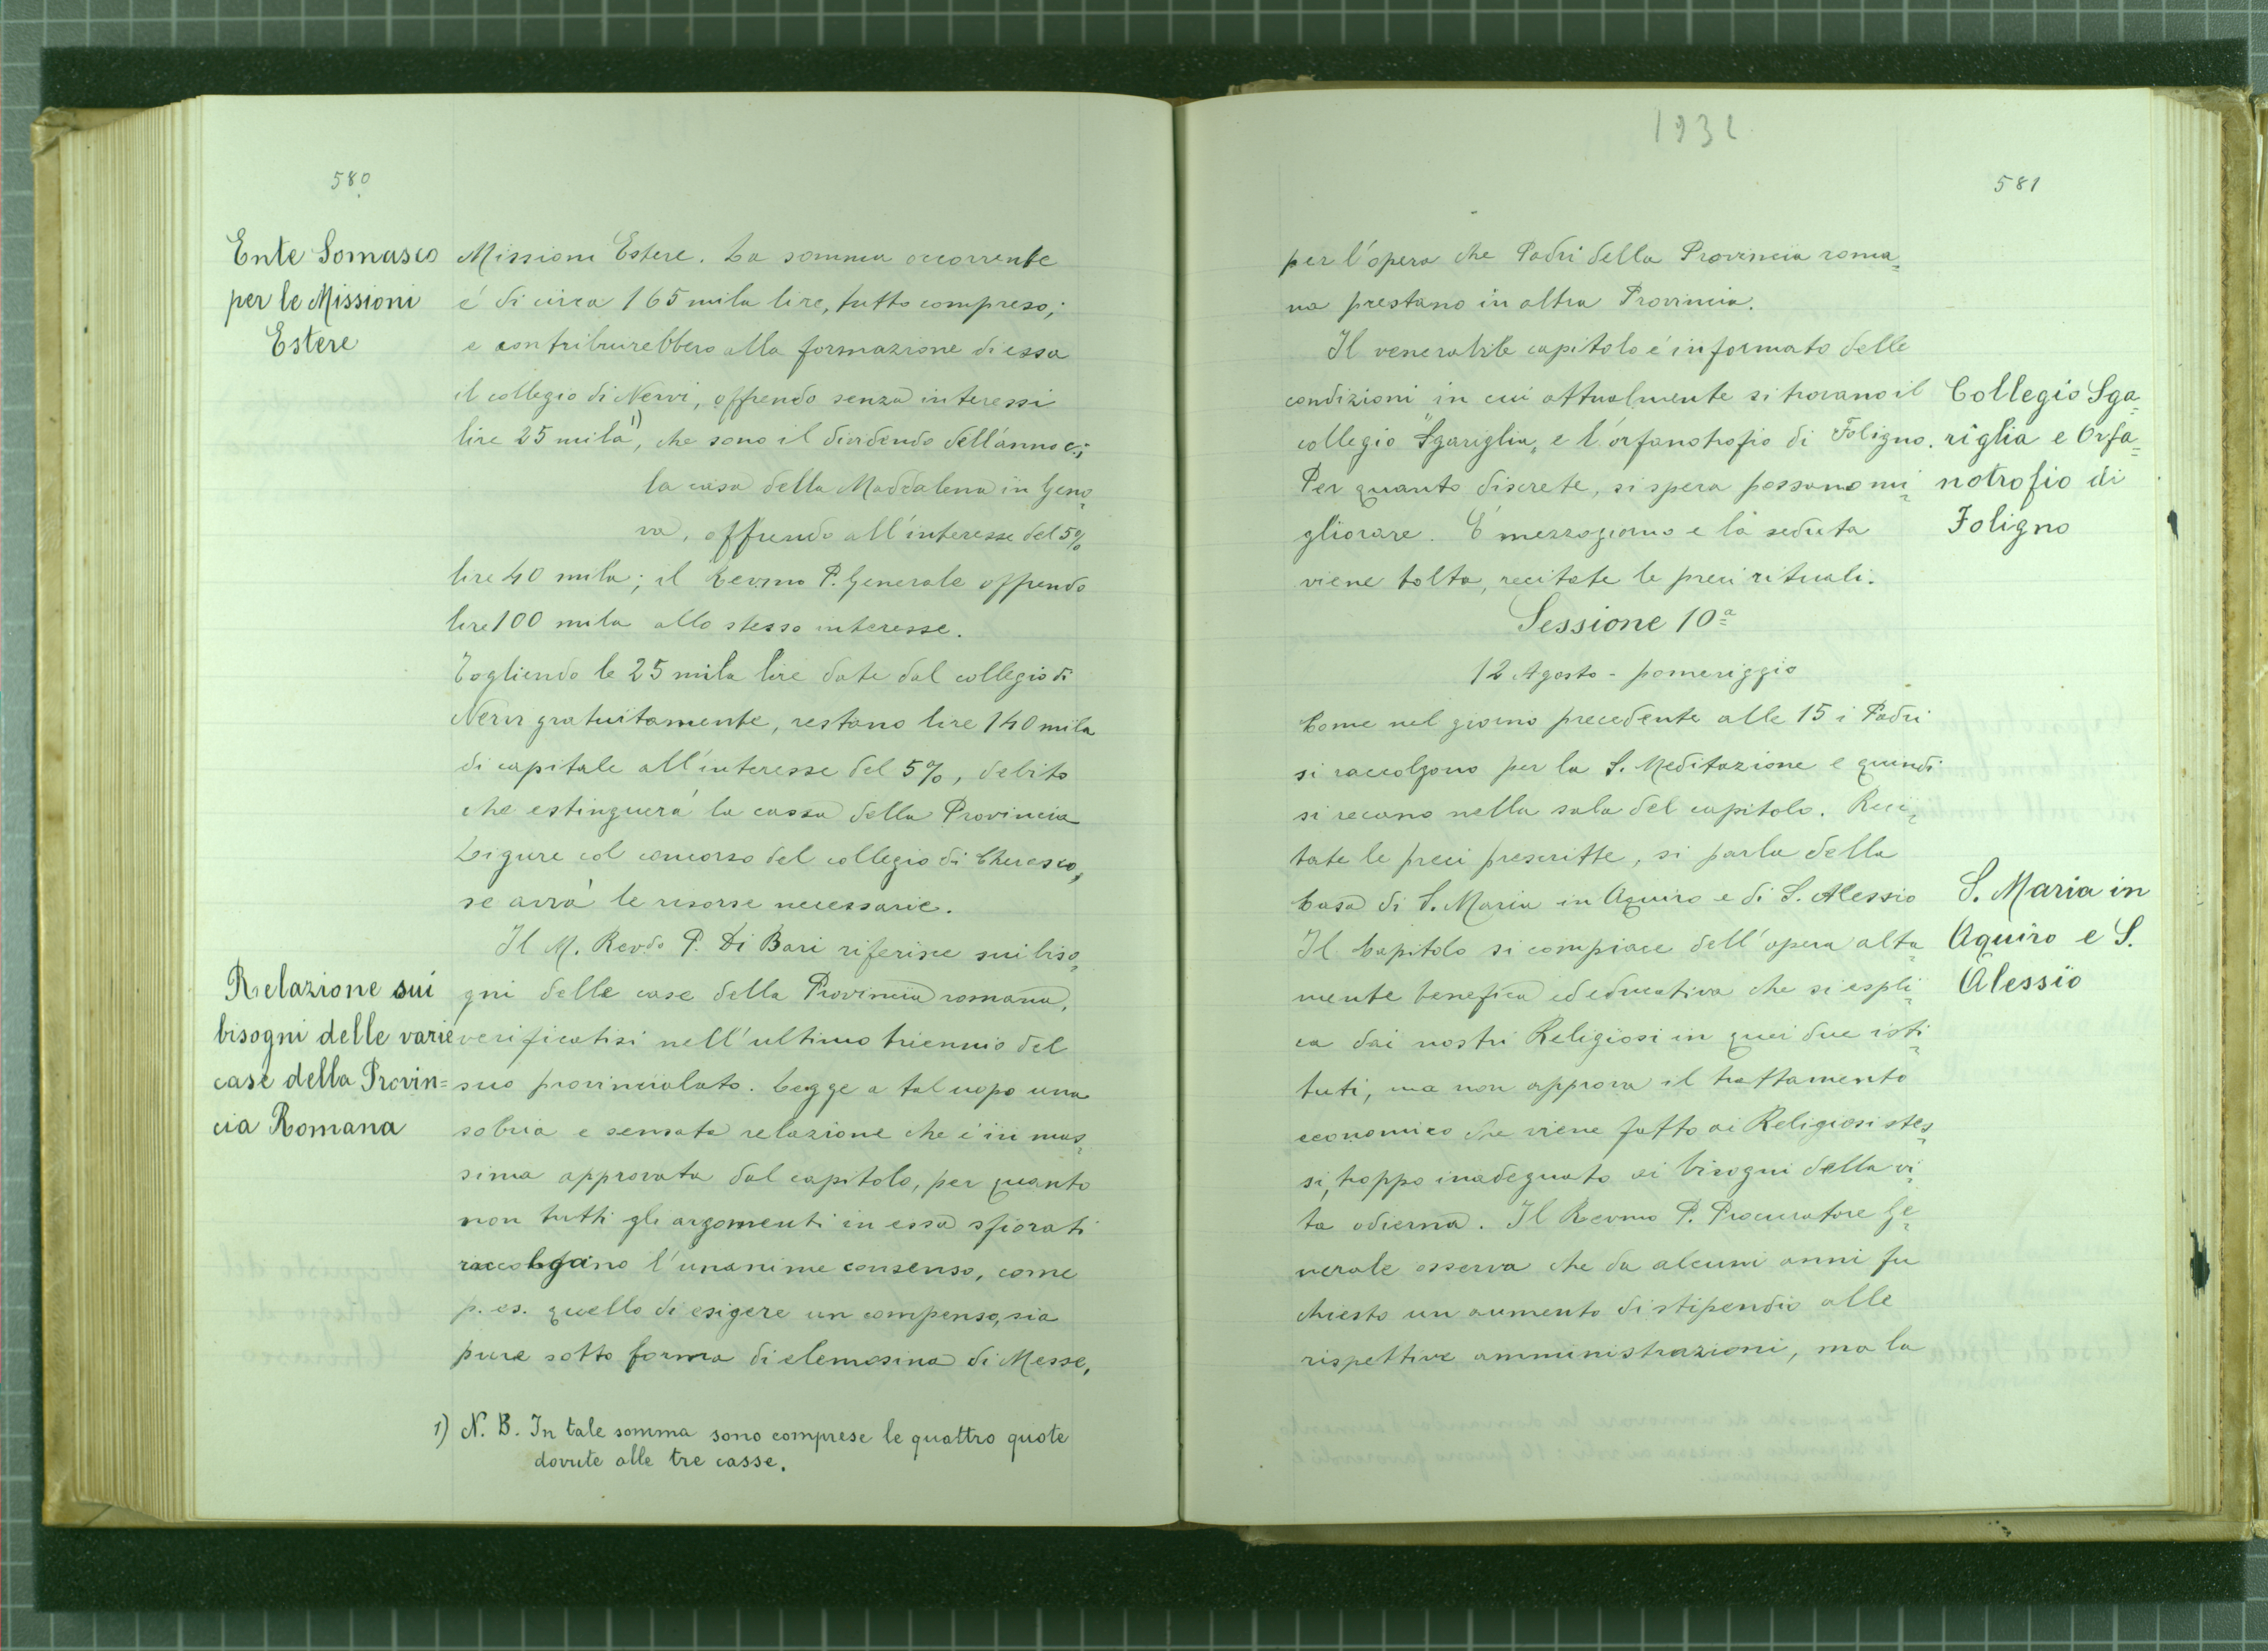 580
Ente Somasco
per le Missioni
Estere
Missioni Estere. La somma occorrente
é di circa 165 mila lire, tutto compreso;
e contribuirebbero alla formazione di essa
il collegio di Nervi, offrendo senza interessi
lire 25 mila 1), che sono il dividendo dell'anno c.;
la casa della Maddalena in Geno=
va, offrendo all'interesse del 5%
lire 40 mila; il Revmo P. Generale offrendo
lire 100 mila allo stesso interesse.
Togliendo le 25 mila lire date dal collegio di
Nervi gratuitamente, restano lire 140 mila
di capitale all'interesse del 5%, debito
che estinguerá la cassa della Provincia
Ligure col concorso del collegio di Cherasco,
se avrá le risorse necessarie.
Il M. Revdo P. Di Bari riferisce sui biso=
Relazione sui
bisogni delle varie
case della Provin=
cia Romana
gni delle case della Provincia romana,
verificatisi nell'ultimo triennio del
suo provincialato. Legge a tal uopo una
sobria e sensata relazione che é in mas=
sima approvata dal capitolo, per quanto
non tutti gli argomenti in essa sfiorati
raccolgano l'unanime consenso, come
p. es. quello di esigere un compenso, sia
pure sotto forma di elemosina di Messe,
1) N. B. In tale somma sono comprese le quattro quote
dovute alle tre casse.
1932
581
per l'opera che Padri della Provincia roma=
na prestano in altra Provincia.
Il venerabile capitolo é informato delle
condizioni in cui attualmente si trovano il
collegio "Sgariglia" e l'orfanotrofio di Foligno.
Per quanto discrete, si spera possano mi=
gliorare. É mezzogiorno e la seduta
viene tolta, recitate le preci rituali.
Collegio Sga=
riglia e Orfa=
notrofio di
Foligno
Sessione 10ª
12 Agosto - pomeriggio
Come nel giorno precedente alle 15 i Padri
si raccolgono per la S. Meditazione e quindi
si recano nella sala del capitolo. Reci=
tate le preci prescritte, si parla della
Casa di S. Maria in Aquiro e di S. Alessio
Il Capitolo si compiace dell'opera alta=
mente benefica ed educativa che si espli=
ca dai nostri Religiosi in quei due isti=
tuti, ma non approva il trattamento
economico che viene fatto ai Religiosi stes=
si, troppo inadeguato ai bisogni della vi=
ta odierna. Il Revmo P. Procuratore Ge=
nerale osserva che da alcuni anni fu
chiesto un aumento di stipendio alle
rispettive amministrazioni, ma la
S. Maria in
Aquiro e S.
Alessio